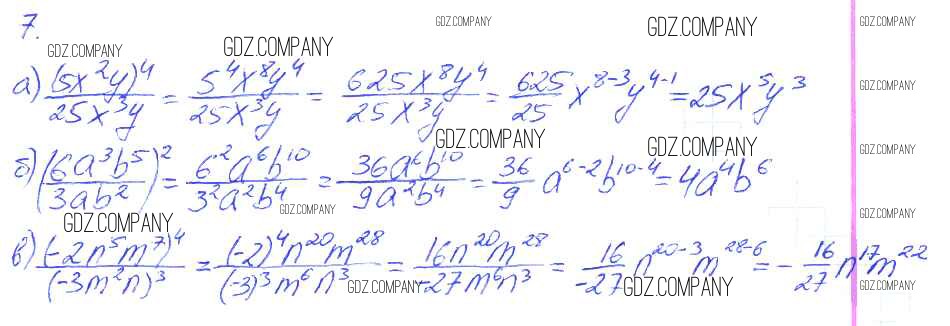 7.
GDZ.COMPANY GDZ.COMPANY GDZ.COMPANY
GDZ.COMPANY GDZ.COMPANY
а) (5x²y)⁴/25x³y = 5⁴x⁸y⁴/25x³y = 625x⁸y⁴/25x³y = 625/25 x⁸⁻³y⁴⁻¹ = 25x⁵y³ GDZ.COMPANY
GDZ.COMPANY GDZ.COMPANY GDZ.COMPANY
б) (6a³b⁵/3ab²)² = 6²a⁶b¹⁰/3²a²b⁴ = 36a⁶b¹⁰/9a²b⁴ = 36/9 a⁶⁻²b¹⁰⁻⁴ = 4a⁴b⁶
GDZ.COMPANY GDZ.COMPANY GDZ.COMPANY
в) (-2n⁵m⁷)⁴/(-3m²n)³ = (-2)⁴n²⁰m²⁸/(-3)³m⁶n³ = 16n²⁰m²⁸/-27m⁶n³ = 16/-27 n²⁰⁻³m²⁸⁻⁶ = -16/27 n¹⁷m²²
GDZ.COMPANY GDZ.COMPANY GDZ.COMPANY